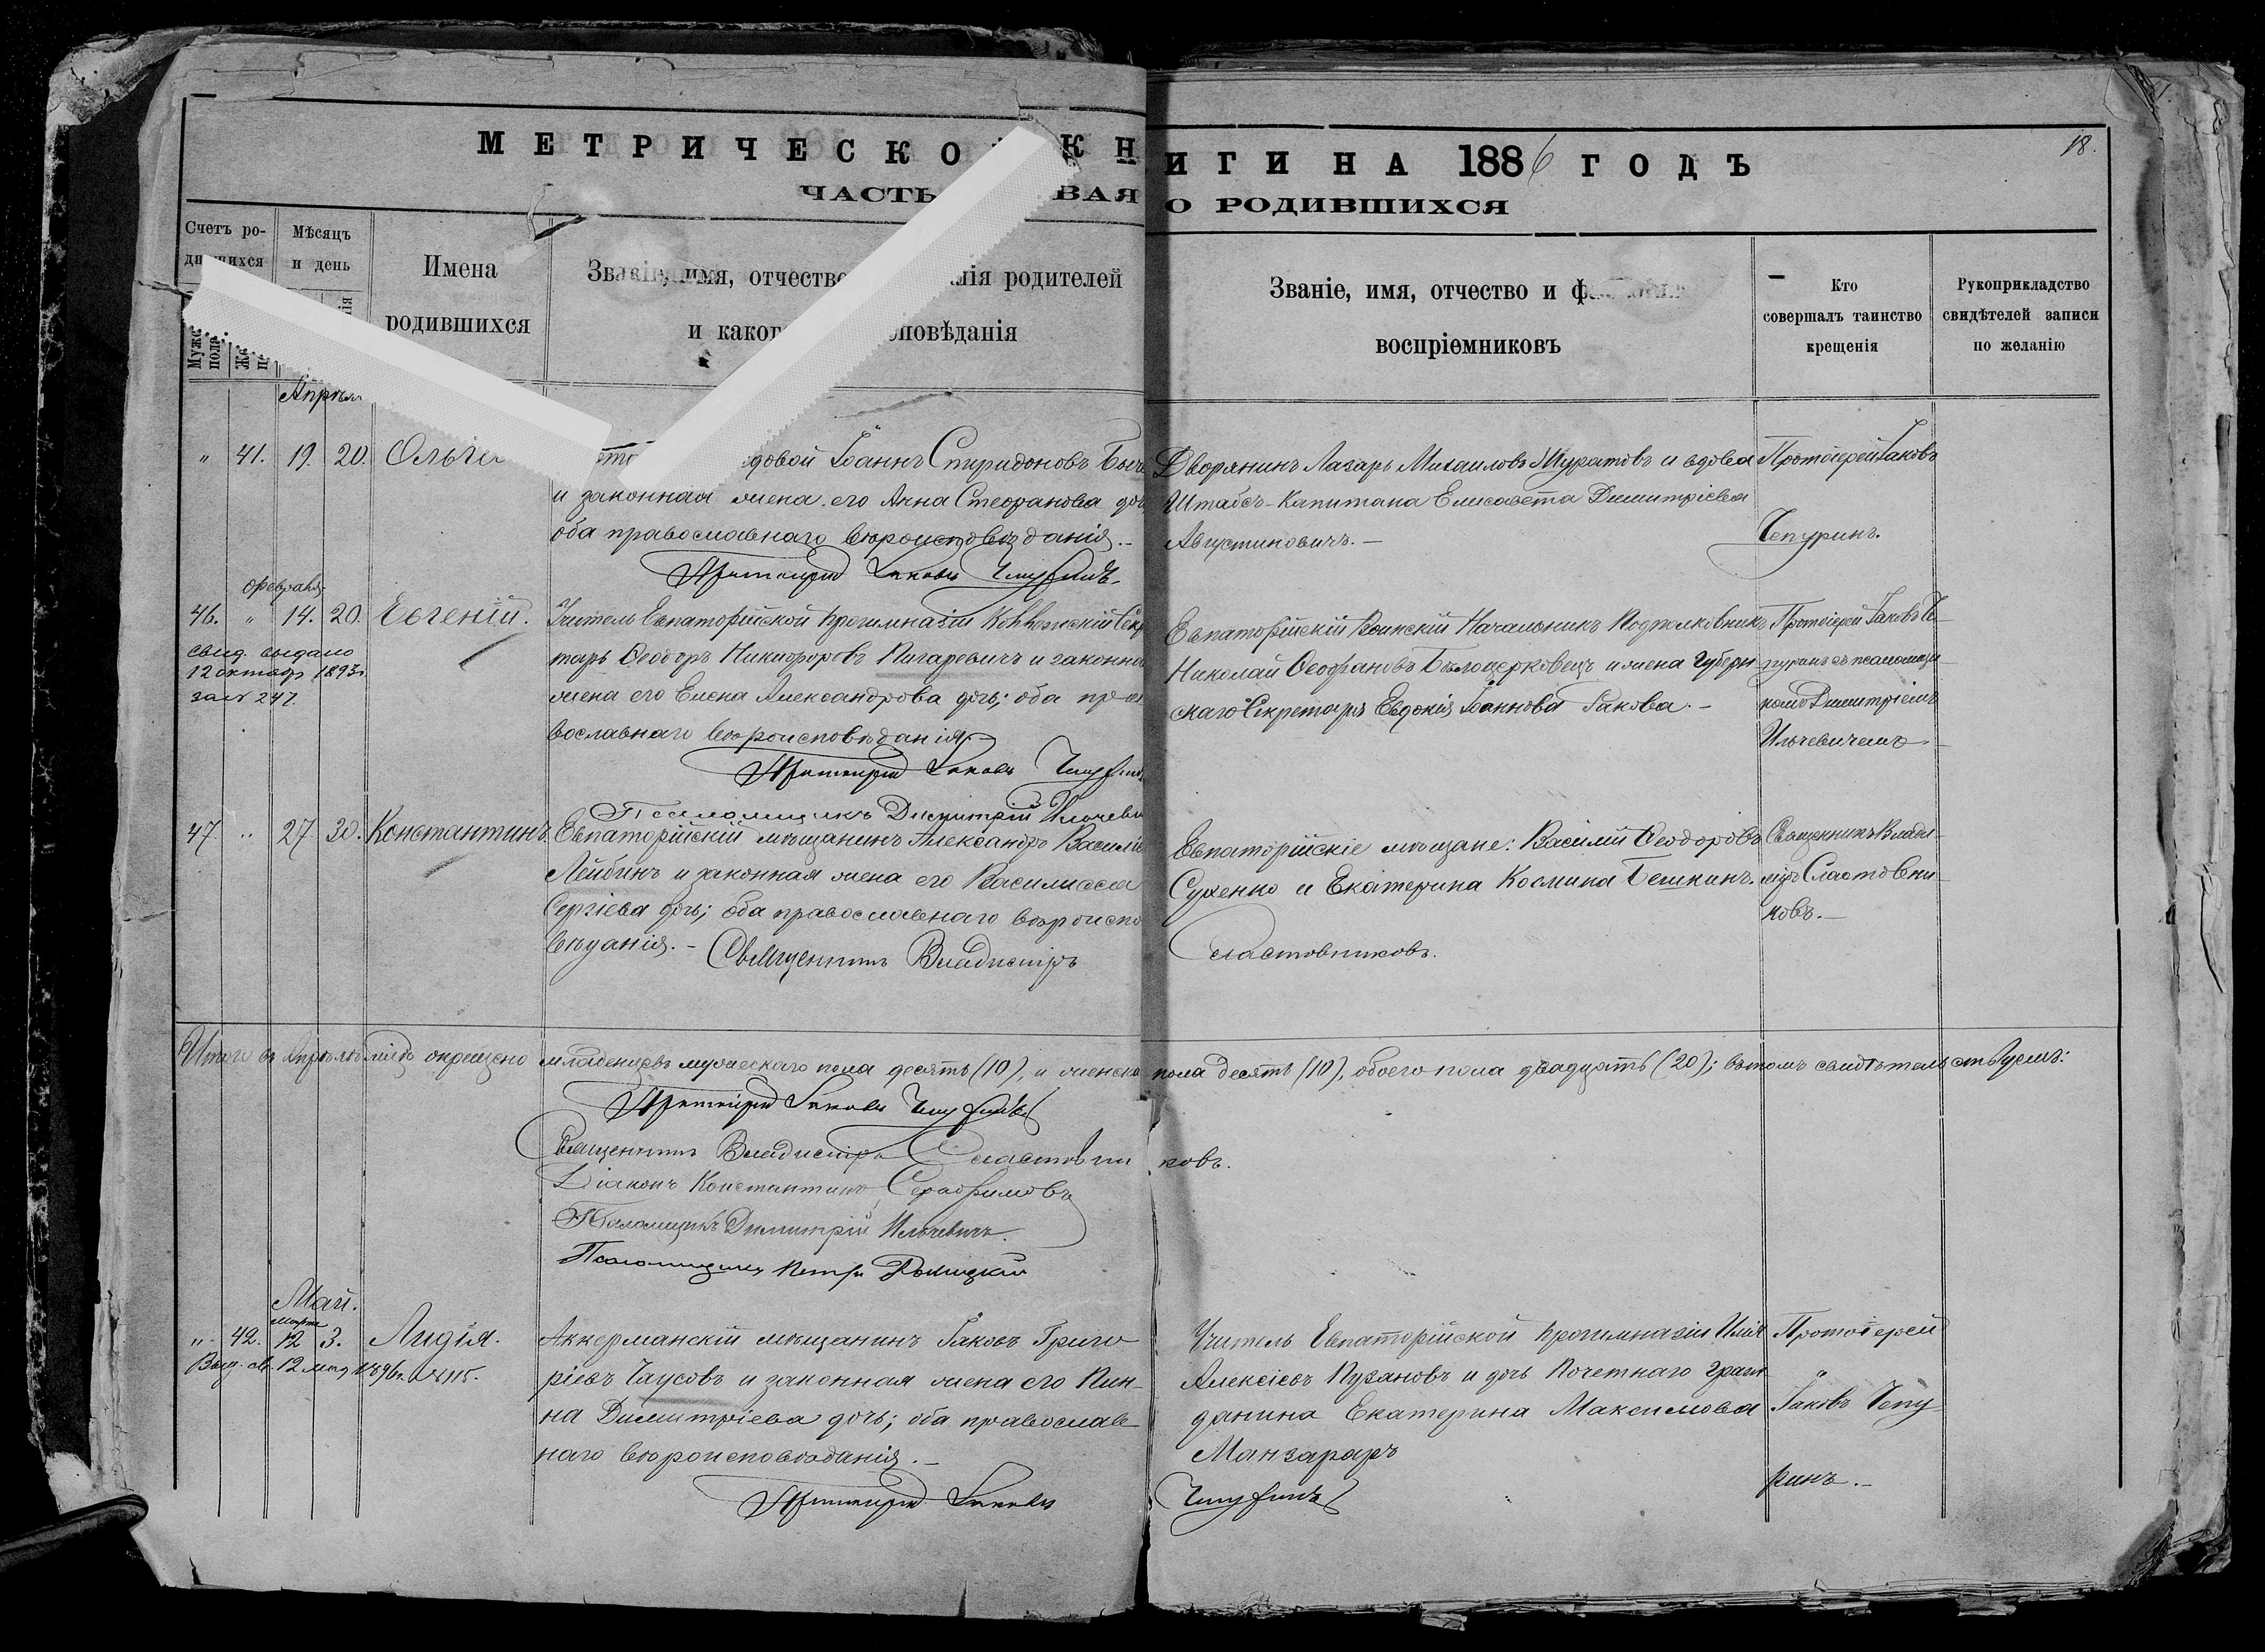 МЕТРИЧЕСКО КНИГИ НА 1886 ГОДЪ
18.
ЧАСТЬ ВАЯ О РОДИВШИХСЯ
Счетъ ро-
Мѣсяцъ
и день
Имена
родившихся
Званіе, имя, отчество лія родителей
и каког повѣданія
Званіе, имя, отчество и
воспріемниковъ
Кто
совершалъ таинство
крещенія
Рукоприкладство
свидѣтелей записи
по желанію
Муже
пола
Апрѣль
" 41. 19. 20. Ольга
довой Іоаннъ Спиридоновъ
и законная жена его Анна Стефанова
оба православнаго вѣроисповѣданія.-
Протоіерей Іаковъ Чепуринъ.
Дворянинъ Лазарь Михаиловъ Муратовъ и вдова
Штабсъ-Капитана Елисавета Димитріева
Августиновичъ.-
Протоіерей Іаковъ
Чепуринъ.
Февраля
46. " 14. 20. Евгеній.
свид. выдано
12 октябр 1893г.
за № 247.
Учитель Евпаторійской прогимназіи Коллежскій Секр
тарь Ѳеодоръ Никифоровъ Пигаревичъ и законна
жена его Елена Александрова дочь; оба пра
вославнаго вѣроисповѣданія.-
Протоіерей Іаковъ
Псаломщикъ Димитрій
Евпаторійскій Воинскій Начальникъ Подполковникъ
Николай Ѳеофановъ Бѣлоцерковецъ и жена Губерн-
скаго Секретаря Евдокія Іоаннова Гакова.-
Протоіерей Іаковъ Че-
пуринъ съ псаломщи-
комъ Димитріемъ
Ильчевичемъ.-
47. " 27. 30. Константинъ.
Евпаторійскій мѣщанинъ Александръ Василіе
Лейбинъ и законная жена его Василисса
Сергіева дочь; оба православнаго вѣроиспо
вѣданія.- Священникъ Владиміръ
Евпаторійскіе мѣщане: Василій Ѳеодоровъ
Сухенко и Екатерина Космина Бешкинъ.
Сластовниковъ.
Священникъ Влади-
міръ Сластовни-
ковъ.-
Итого въ Апрѣлѣ мѣсяцѣ окрещено младенцевъ мужескаго пола десять (10), и женска пола десять (10), обоего пола двадцать (20); въ томъ свидѣтельствуемъ:
Протоіерей Іаковъ Чепуринъ
Священникъ Владиміръ Сластовниковъ.
Діаконъ Константинъ Серафимовъ
Псаломщикъ Димитрій Ильчевичъ.
Псаломщикъ Петръ
Май.
Марта
" 42. 12 3. Лидія.
Выд. св. 12 мая 1896г. № 115.
Аккерманскій мѣщанинъ Іаковъ Григо
ріевъ Чаусовъ и законная жена его Пин-
на Димитріева дочь; оба православ-
наго вѣроисповѣданія.-
Протоіерей Іаковъ Чепуринъ
Учитель Евпаторійской прогимназіи Илія
Алексіевъ Пузановъ и дочь Почетнаго граж
данина Екатерина Максимова
Манзараръ
Протоіерей
Іаковъ Чепу
ринъ.-